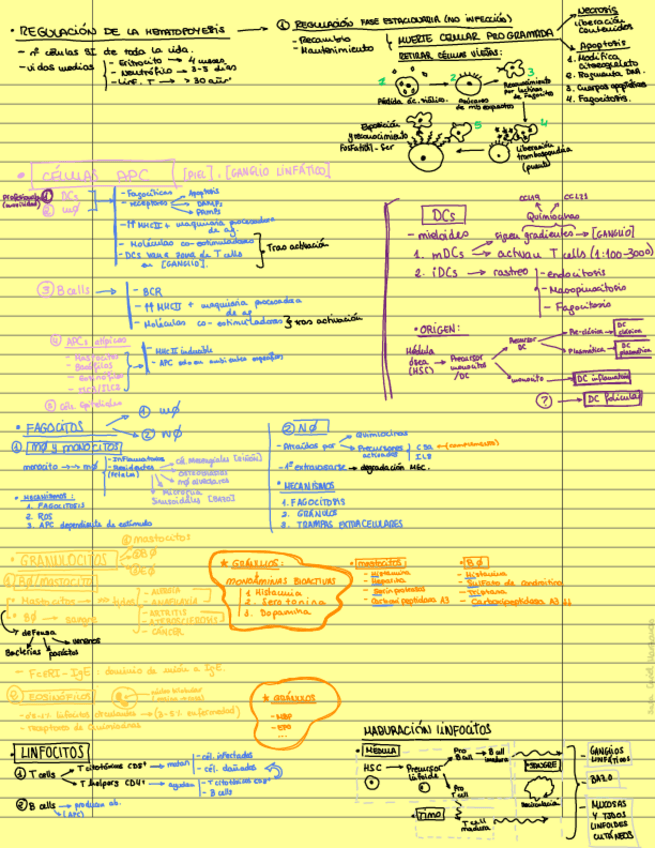 • REGULACIÓN DE LA HEMATOPOYESIS
- nº células SI de toda la vida.
- vidas medias
- Eritrocito → 4 meses
- Neutrófilo → 3-5 días
- Linf. T → > 30 años
① REGULACIÓN FASE ESTACIONARIA (NO INFECCIÓN)
- Recambio
- Mantenimiento
MUERTE CELULAR PROGRAMADA
RETIRAR CÉLULAS VIEJAS:
Necrosis
liberación
contenidos
Apoptosis
1. Modifica
citoesqueleto
2. Fragmenta DNA.
3. Cuerpos apoptóticos
4. Fagocitosis.
1
Pérdida ác. siálico.
2
Azúcares
de mb expuestos
3
Reconocimiento
por lectinas
de Fagocito
4
Liberación
trombospondina
(puente)
5
Exposición
y reconocimiento
Fosfatidil-Ser
• CÉLULAS APC [PIEL], [GANGLIO LINFÁTICO]
Profesionales
① DCs
② MØ
- Fagocíticas
- Receptores
Apoptosis
DAMPs
PAMPs
- ↑↑ MHCII + maquinaria procesadora
de ag.
- Moléculas co-estimuladoras
- DCs van a zona de T cells
en [GANGLIO].
Tras activación
③ B cells
- BCR
- ↑↑ MHCII + maquinaria procesadora
de ag
- Moléculas co-estimuladoras } tras activación
④ APCs atípicas
- Mastocitos
- Basófilos
- Eosinófilos
- MHC II inducible
- APC solo en ambientes específicos
⑤ cél. epiteliales
DCs
CCL19 CCL21
Quimiocinas
- mieloides
siguen gradientes → [GANGLIO]
1. mDCs → activan T cells (1:100-3000)
2. iDCs → rastreo
- endocitosis
- Macropinocitosis
- Fagocitosis
• ORIGEN:
Médula
ósea
(HSC)
Precursor
monocitos
/DC
Precursor
DC
Pre-clásica
DC
clásica
Plasmática
DC
plasmática
monocito
DC inflamatoria
? → DC folicular
• FAGOCITOS
① MØ
② NØ
① MØ y MONOCITOS
monocito → → MØ
- Inflamatorios
- Residentes
cél. Mesangiales [RIÑÓN]
OSTEOCLASTOS
MØ alveolares
Microglía
Sinusoidales [BAZO]
• MECANISMOS:
1. FAGOCITOSIS
2. ROS
3. APC dependiente de estímulo
② NØ
- Atraídos por
Quimiocinas
Precursores
activados
C5a → (complemento)
IL8
- 1º extravasarse → degradación MEC.
• MECANISMOS
1. FAGOCITOSIS
2. GRÁNULOS
3. TRAMPAS EXTRACELULARES
• GRANULOCITOS
① mastocitos
② BØ
③ EØ
① BØ/MASTOCITO
* Mastocitos
* BØ → sangre
- ALERGIA
- ANAFILAXIA
- ARTRITIS
- ATEROSCLEROSIS
- CÁNCER
defensa
Bacterias
parásitos
venenos
- FcεRI-IgE: dominio de unión a IgE.
* GRÁNULOS:
MONOAMINAS BIOACTIVAS
1. Histamina
2. Serotonina
3. Dopamina
• MASTOCITOS:
- Histamina
- Heparina
- Serin proteasas
- Carboxipeptidasa A3
• BØ
- Histamina
- Sulfato de condroitina
- Triptasa
- Carboxipeptidasa A3 ↓↓
② EOSINÓFILOS
núcleo bilobular
- receptores de quimiocinas
* GRÁNULOS
- MBP
- EPO
...
• LINFOCITOS
① T cells
T citotóxicos CD8+ → matan
- cél. infectadas
- cél. dañadas
T helpers CD4+ → ayudan
- T citotóxicos CD8+
- B cells
② B cells → producen ab.
(APC)
MADURACIÓN LINFOCITOS
• MÉDULA
HSC → Precursor
linfoide
Pro
B cell
B cell
inmadura
Pro
T cell
• TIMO
T cell
madura
• SANGRE
Recirculación
- GANGLIOS
LINFÁTICOS
- BAZO
- MUCOSAS
Y TEJIDOS
LINFOIDES
CUTÁNEOS